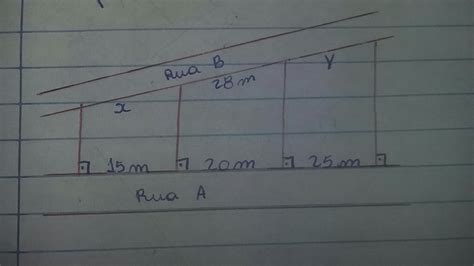 Rua B
x 28m y
15m 20m 25m
Rua A